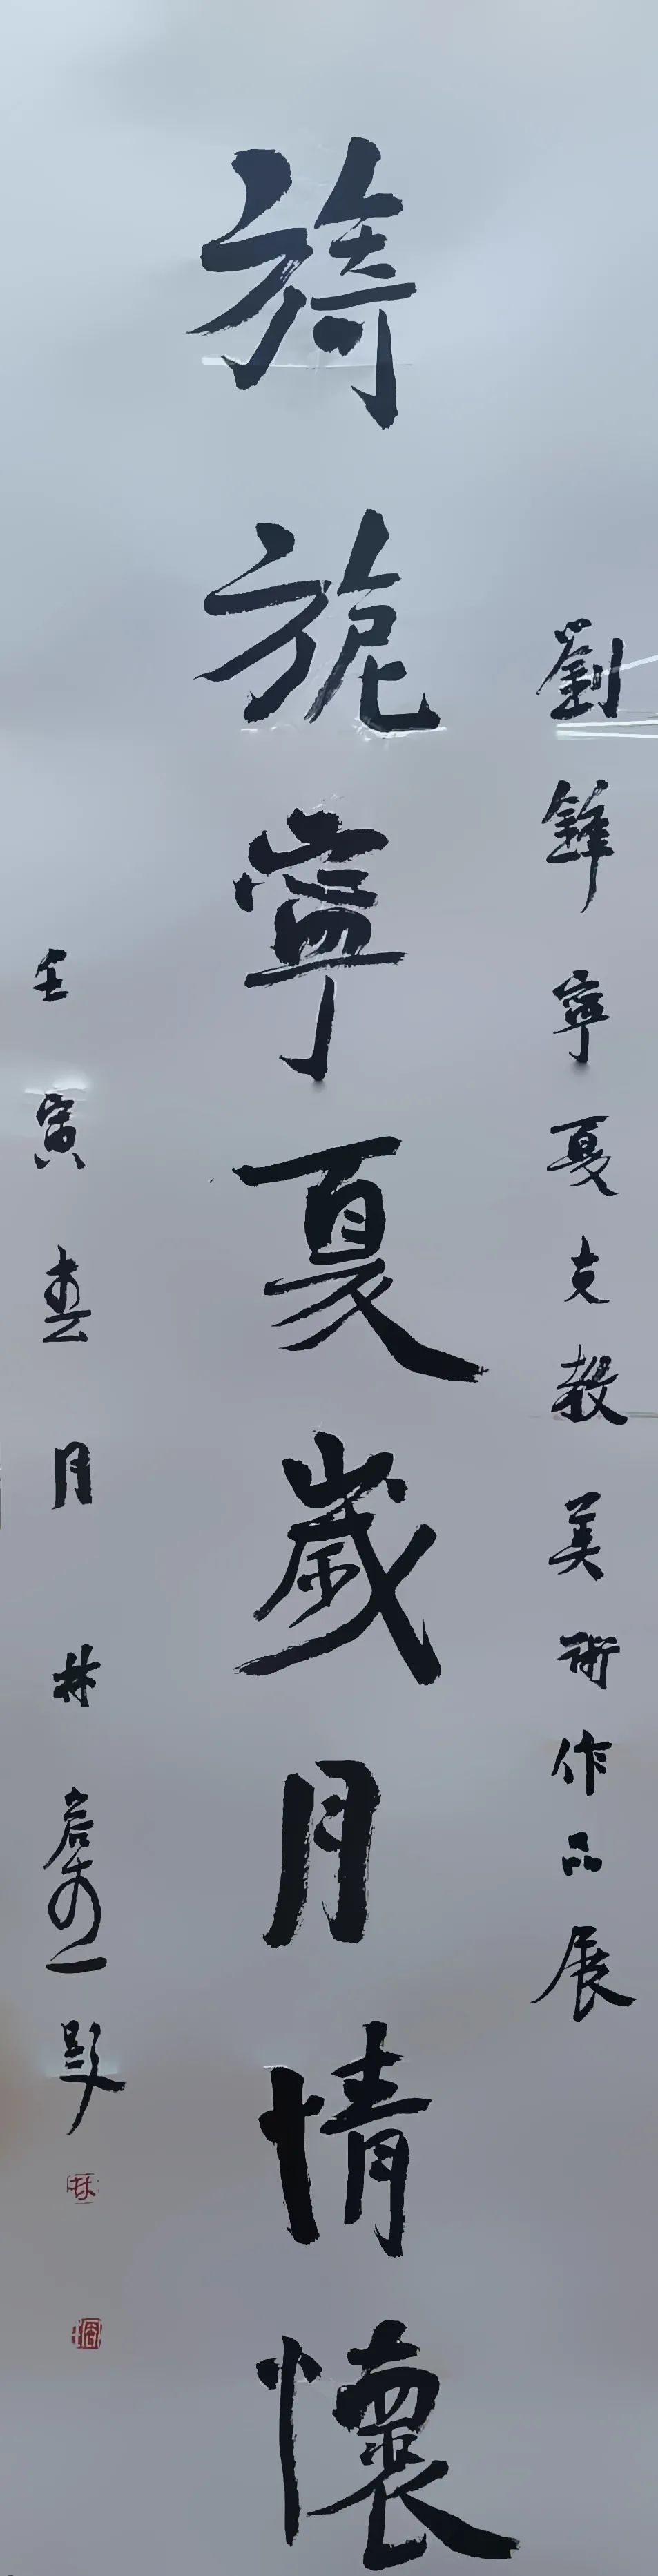 劉鋒寧夏支教美術作品展
旖旎寧夏歲月情懷
壬寅春月林岩題
林